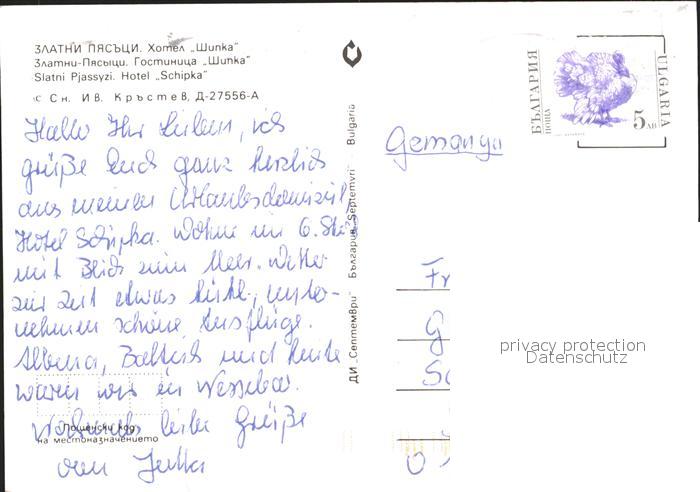 ЗЛАТНИ ПЯСЪЦИ. Хотел „Шипка"
Златни-Пясыци. Гостиница „Шипка"
Slatni Pjassyzi. Hotel „Schipka"
с Сн. Ив. Кръстев, Д-27556-А
Hallo Ihr Lieben, ich
grüße Euch ganz herzlich
aus meinem Urlaubsdomizil
Hotel Schipka. Wohne im 6. St.
mit Blick zum Meer. Wetter
zur Zeit etwas kühl, unter-
nehmen schöne Ausflüge.
Albena, Baltschik und heute
waren wir in Nessebar.
Nochmals liebe Grüße
von Jutta
Пощенски код
на местоназначението
ДИ „Септември" България „Septemvri" Bulgaria
БЪЛГАРИЯ
ПОЩА
5 ЛВ
BULGARIA
Germaniya
Fr
G
Sc
O
privacy protection
Datenschutz